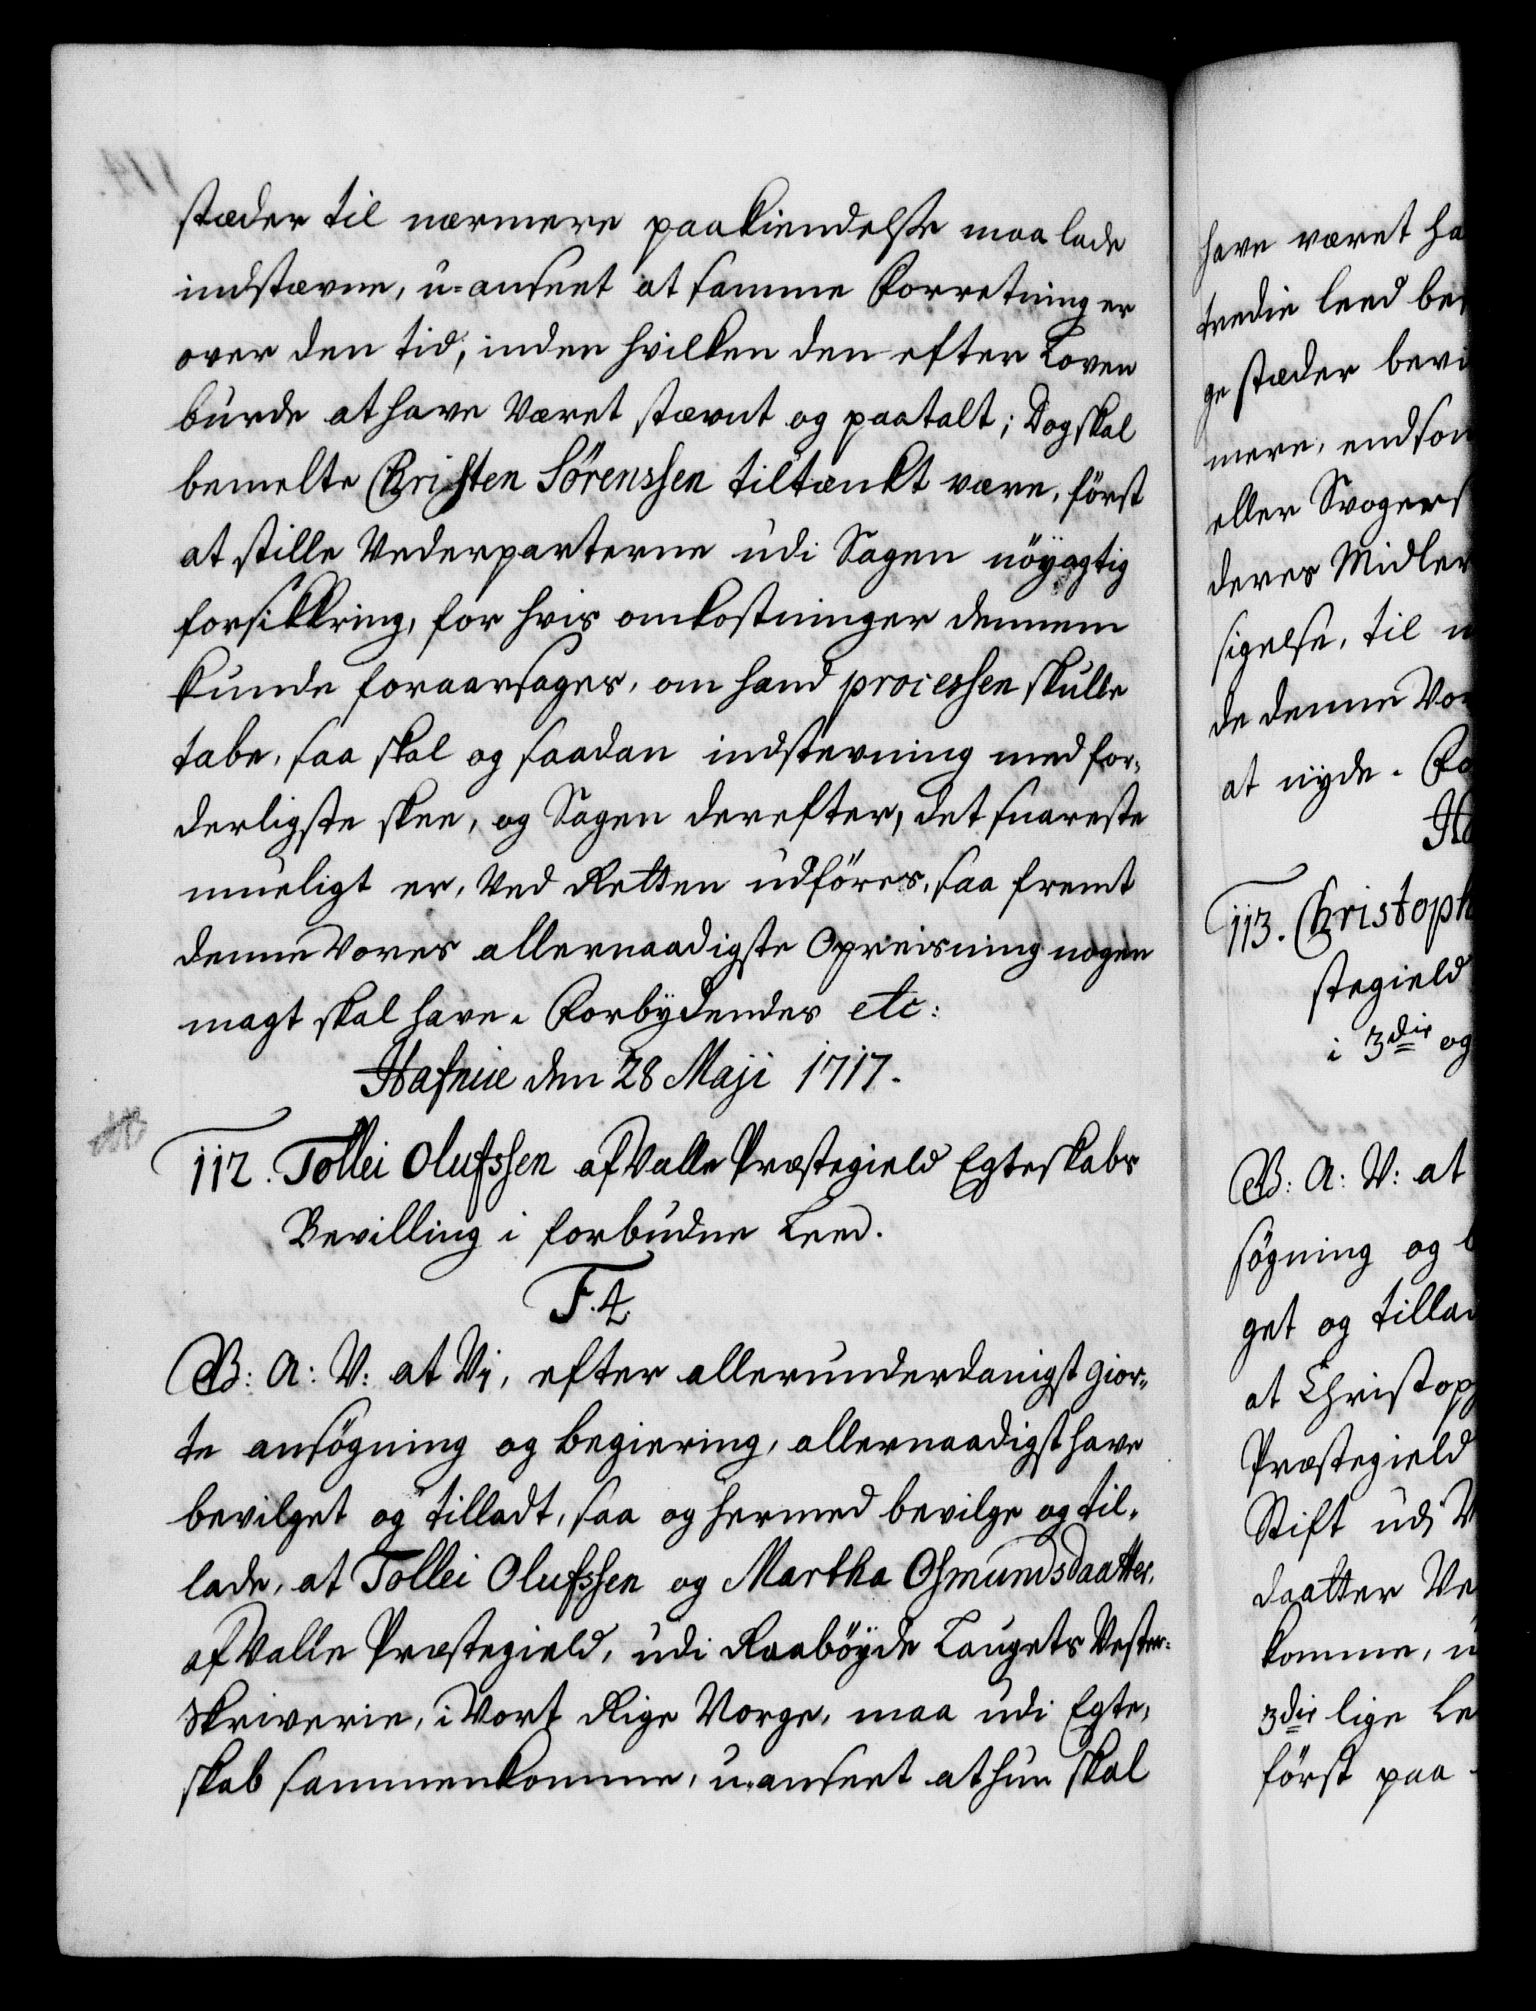 stæder til nærmere paakiendelse maa lade
indstævne, u-anseet at samme Forretning er
over den tid, inden hvilken den efter Loven
burde at have været stævnt og paatalt; Dog skal
bemelte Christen Sørenssen tiltænkt være, først
at stille Vederparterne udi Sagen nöyagtig
forsikkring, for hvis omkostninger dennem
kunde foraarsages, om hand processen skulle
tabe, saa skal og saadan indstevning med for-
derligste skee, og Sagen derefter, det snareste
mueligt er, ved Retten udföres, saa fremt
denne Vores allernaadigste Opreisning nogen
magt skal have. Forbydendes etc:
Hafniæ den 28 Maji 1717.
112. Tollei Olufssen af Valle Præstegield Egteskabs
Bevilling i forbudne Leed.
F. 4.
B: A: V: at Vi, efter allerunderdanigst gior-
te ansøgning og begiering, allernaadigst have
bevilget og tilladt, saa og hermed bevilge og til-
lade, at Tollei Olufssen og Martha Osmundsdaatter,
af Valle Præstegield, udi Raabøyde Laugets Vester-
skriverie, i Vort Rige Norge, maa udi Egte-
skab sammenkomme, u-anseet at hun skal
have været
tredie leed
ge stæder
mere, endson
eller
deres Midler
sigelse, til
de denne
at nyde.
113. Christoph
stegield
i 3die og
B: A: V: at
søgning og
get og
at Christoph
Præstegield
Stift udi
daatter
komme,
3die lige
først paa